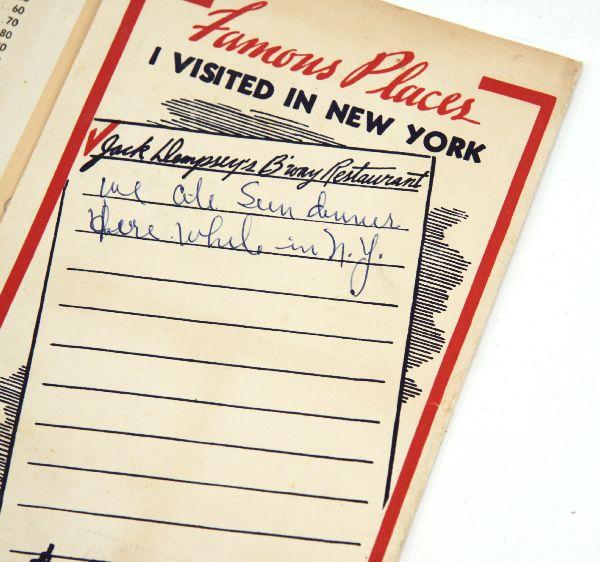 .60
.70
.80
Famous Places
I VISITED IN NEW YORK
Jack Dempsey's B'way Restaurant
we ate Sun dinner
there while in N.Y.